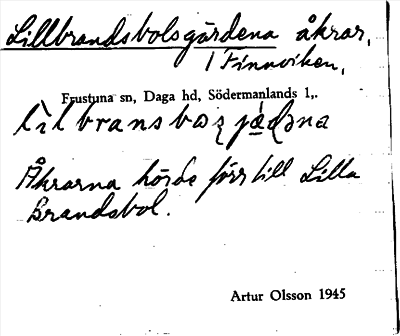 Lillbrandsbolsgärdena åkrar,
i Finnviken,
Frustuna sn, Daga hd, Södermanlands l.
Åkrarna hörde förr till Lilla
Brandsbol.
Artur Olsson 1945